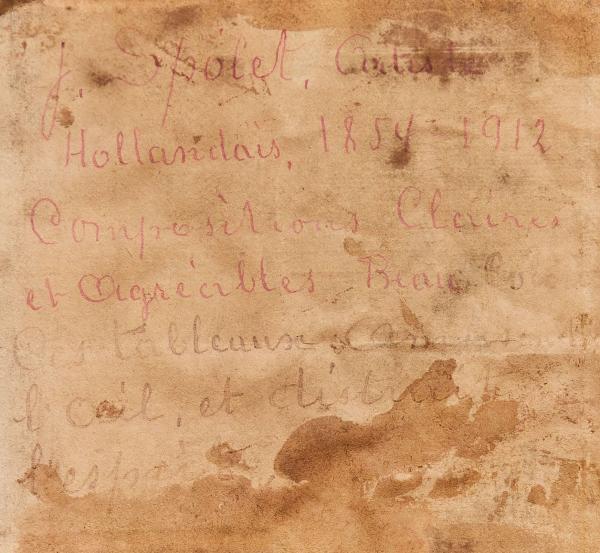 J. Spolet, Artiste
Hollandais, 1854 1912
Compositions Claires
et Agréables Beau
Ces tableaux
l'œil, et distrait
l'esprit